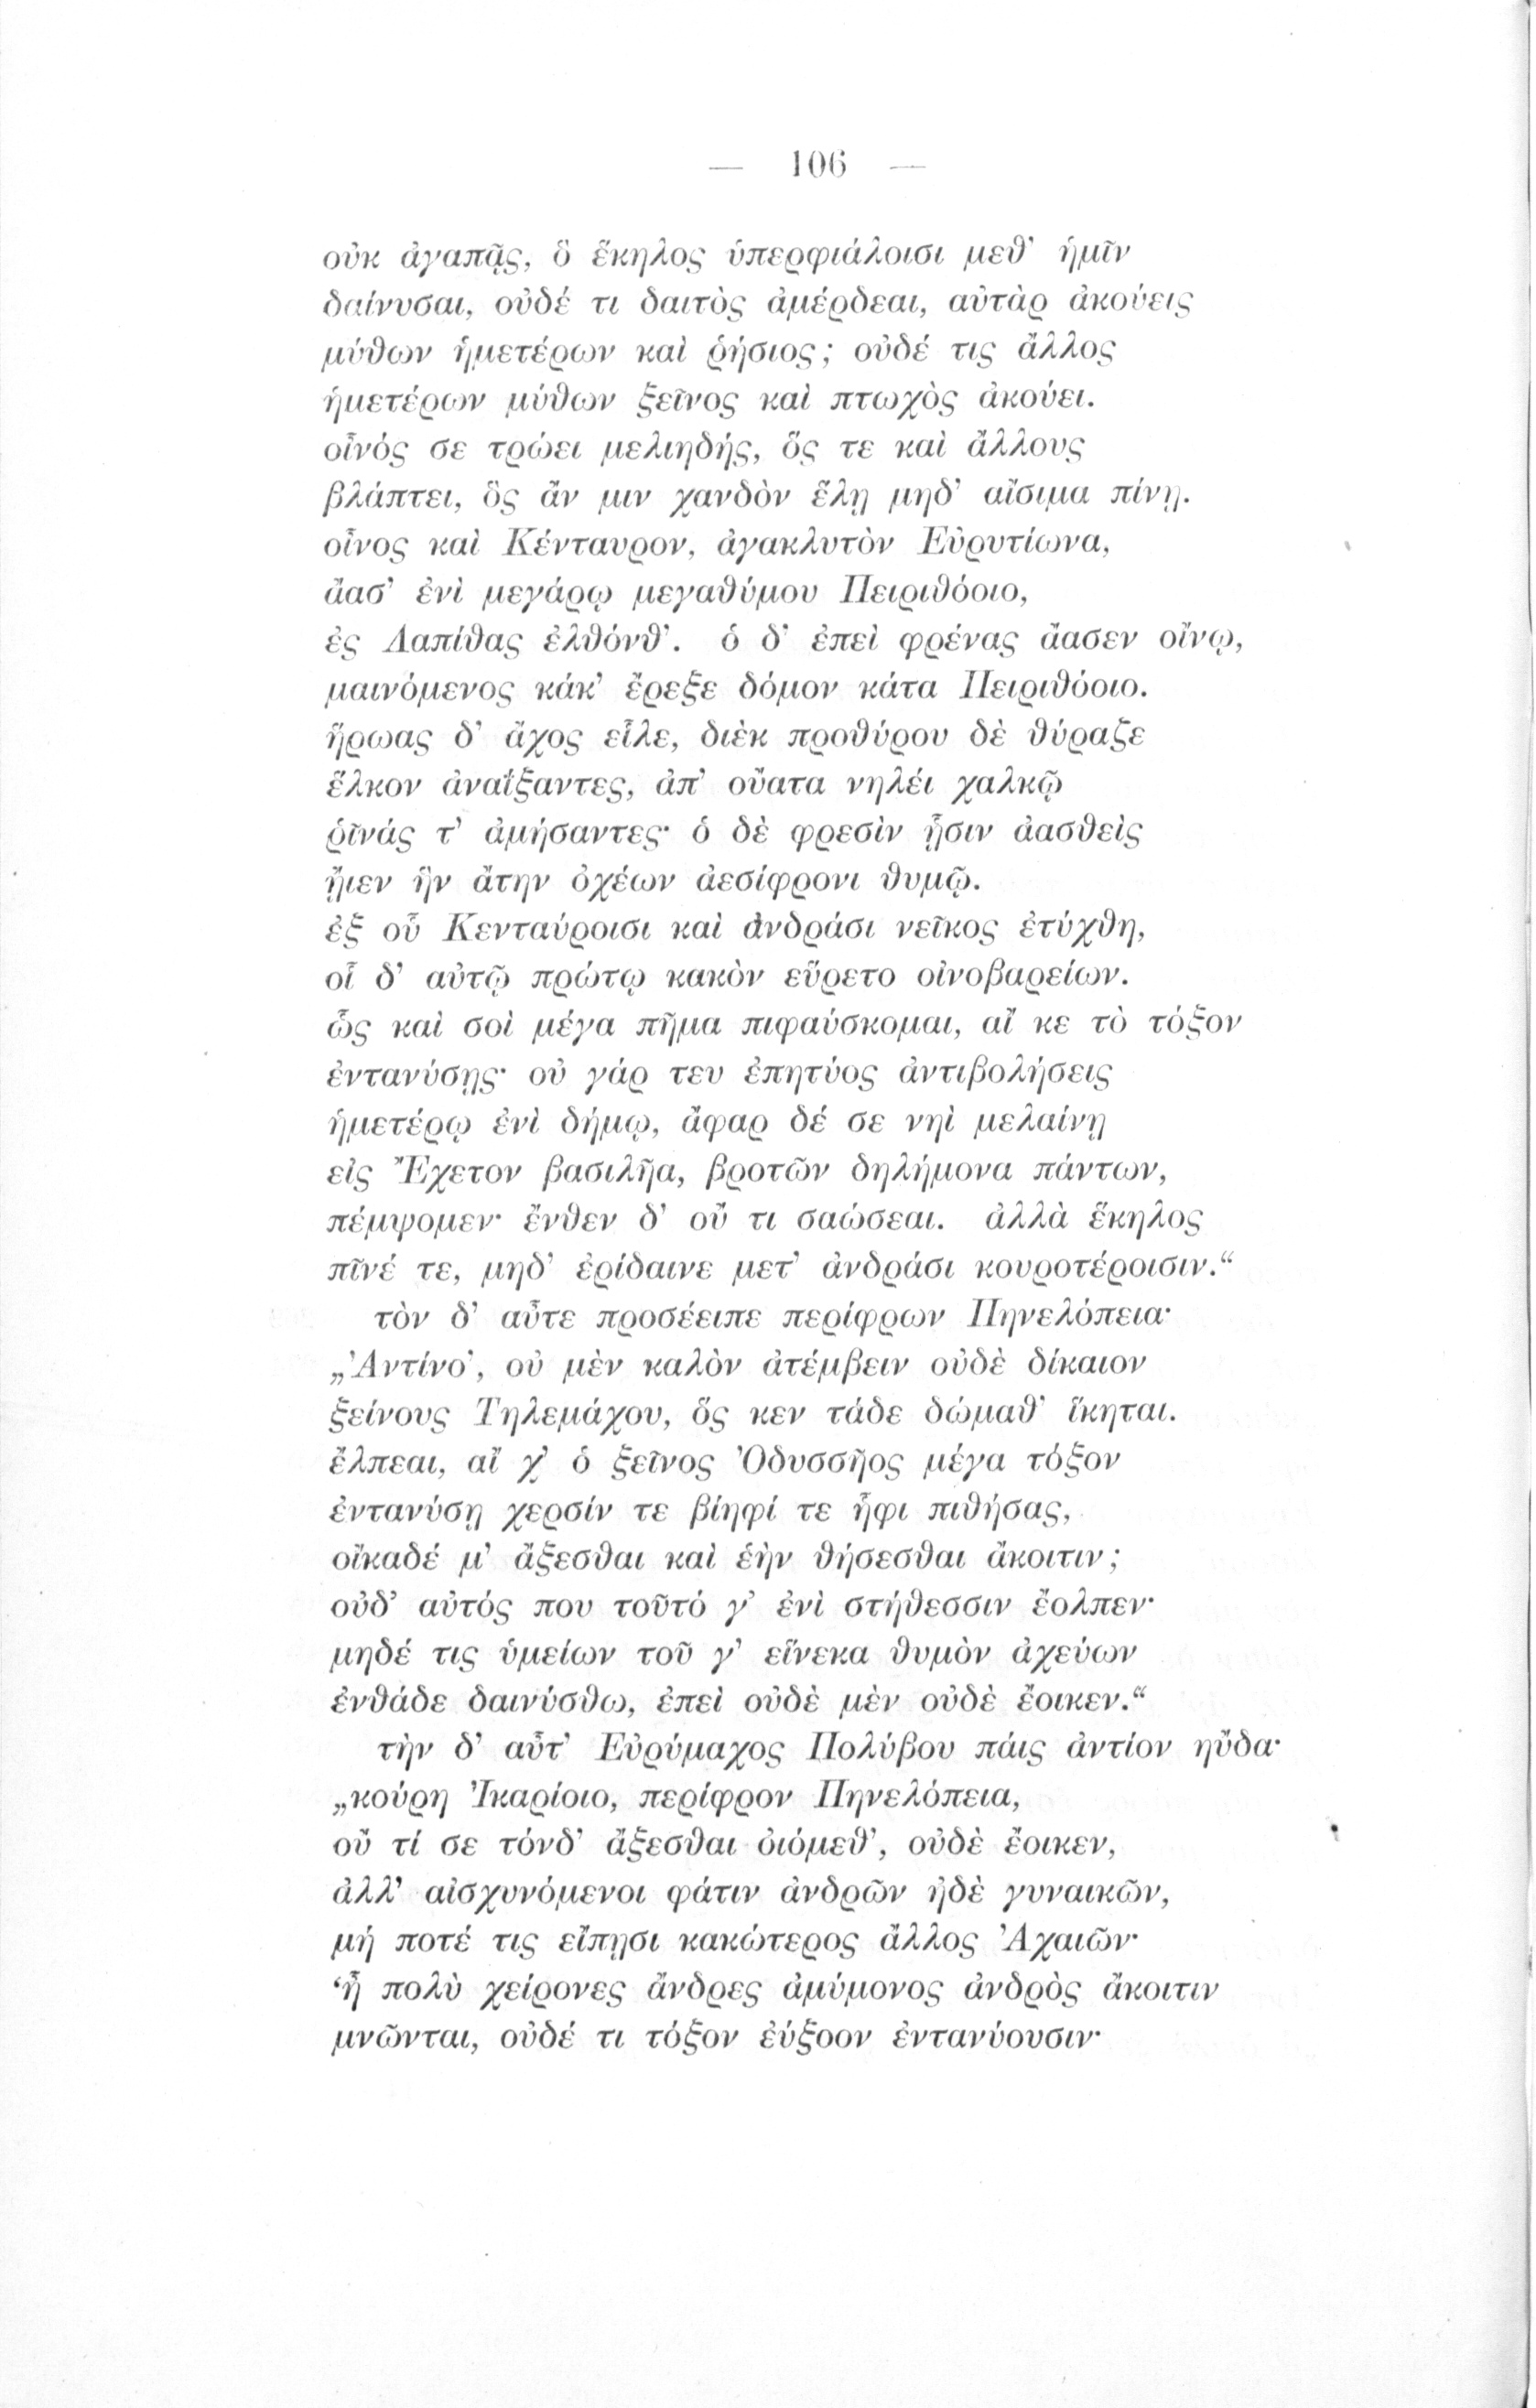 — 106 —
οὐκ ἀγαπᾷς, ὃ ἕκηλος ὑπερφιάλοισι μεθ’ ἡμῖν
δαίνυσαι, οὐδέ τι δαιτὸς ἀμέρδεαι, αὐτὰρ ἀκούεις
μύθων ἡμετέρων καὶ ῥήσιος; οὐδέ τις ἄλλος
ἡμετέρων μύθων ξεῖνος καὶ πτωχὸς ἀκούει.
οἶνός σε τρώει μελιηδής, ὅς τε καὶ ἄλλους
βλάπτει, ὃς ἄν μιν χανδὸν ἕλῃ μηδ’ αἴσιμα πίνῃ.
οἶνος καὶ Κένταυρον, ἀγακλυτὸν Εὐρυτίωνα,
ἄασ’ ἐνὶ μεγάρῳ μεγαθύμου Πειριθόοιο,
ἐς Λαπίθας ἐλθόνθ’. ὁ δ’ ἐπεὶ φρένας ἄασεν οἴνῳ,
μαινόμενος κάκ’ ἔρεξε δόμον κάτα Πειριθόοιο.
ἥρωας δ’ ἄχος εἷλε, διὲκ προθύρου δὲ θύραζε
ἕλκον ἀναΐξαντες, ἀπ’ οὔατα νηλέι χαλκῷ
ῥῖνάς τ’ ἀμήσαντες· ὁ δὲ φρεσὶν ᾗσιν ἀασθεὶς
ᾔιεν ἣν ἄτην ὀχέων ἀεσίφρονι θυμῷ.
ἐξ οὗ Κενταύροισι καὶ ἀνδράσι νεῖκος ἐτύχθη,
οἷ δ’ αὐτῷ πρώτῳ κακὸν εὕρετο οἰνοβαρείων.
ὣς καὶ σοὶ μέγα πῆμα πιφαύσκομαι, αἴ κε τὸ τόξον
ἐντανύσῃς· οὐ γάρ τευ ἐπητύος ἀντιβολήσεις
ἡμετέρῳ ἐνὶ δήμῳ, ἄφαρ δέ σε νηὶ μελαίνῃ
εἰς Ἔχετον βασιλῆα, βροτῶν δηλήμονα πάντων,
πέμψομεν· ἔνθεν δ’ οὔ τι σαώσεαι. ἀλλὰ ἕκηλος
πῖνέ τε, μηδ’ ἐρίδαινε μετ’ ἀνδράσι κουροτέροισιν.“
τὸν δ’ αὖτε προσέειπε περίφρων Πηνελόπεια·
„Ἀντίνο’, οὐ μὲν καλὸν ἀτέμβειν οὐδὲ δίκαιον
ξείνους Τηλεμάχου, ὅς κεν τάδε δώμαθ’ ἵκηται.
ἔλπεαι, αἴ χ’ ὁ ξεῖνος Ὀδυσσῆος μέγα τόξον
ἐντανύσῃ χερσίν τε βίηφί τε ἧφι πιθήσας,
οἴκαδέ μ’ ἄξεσθαι καὶ ἑὴν θήσεσθαι ἄκοιτιν;
οὐδ’ αὐτός που τοῦτό γ’ ἐνὶ στήθεσσιν ἔολπεν·
μηδέ τις ὑμείων τοῦ γ’ εἵνεκα θυμὸν ἀχεύων
ἐνθάδε δαινύσθω, ἐπεὶ οὐδὲ μὲν οὐδὲ ἔοικεν.“
τὴν δ’ αὖτ’ Εὐρύμαχος Πολύβου πάις ἀντίον ηὔδα·
„κούρη Ἰκαρίοιο, περίφρον Πηνελόπεια,
οὔ τί σε τόνδ’ ἄξεσθαι ὀιόμεθ’, οὐδὲ ἔοικεν,
ἀλλ’ αἰσχυνόμενοι φάτιν ἀνδρῶν ἠδὲ γυναικῶν,
μή ποτέ τις εἴπῃσι κακώτερος ἄλλος Ἀχαιῶν·
‘ἦ πολὺ χείρονες ἄνδρες ἀμύμονος ἀνδρὸς ἄκοιτιν
μνῶνται, οὐδέ τι τόξον ἐύξοον ἐντανύουσιν·